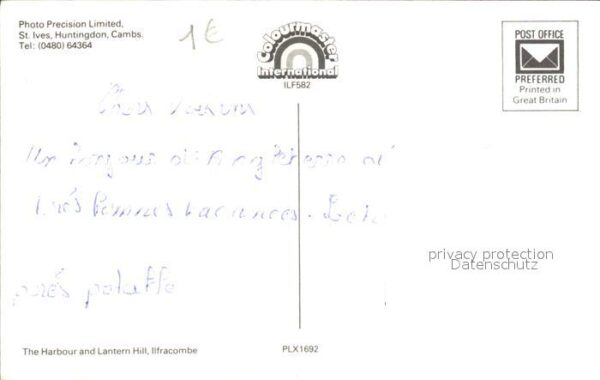 Photo Precision Limited,
St. Ives, Huntingdon, Cambs.
Tel: (0480) 64364
1€
Colourmaster
International
ILF582
POST OFFICE
PREFERRED
Printed in
Great Britain
Un bonjour d'
très bonnes vacances.
privacy protection
Datenschutz
The Harbour and Lantern Hill, Ilfracombe
PLX1692